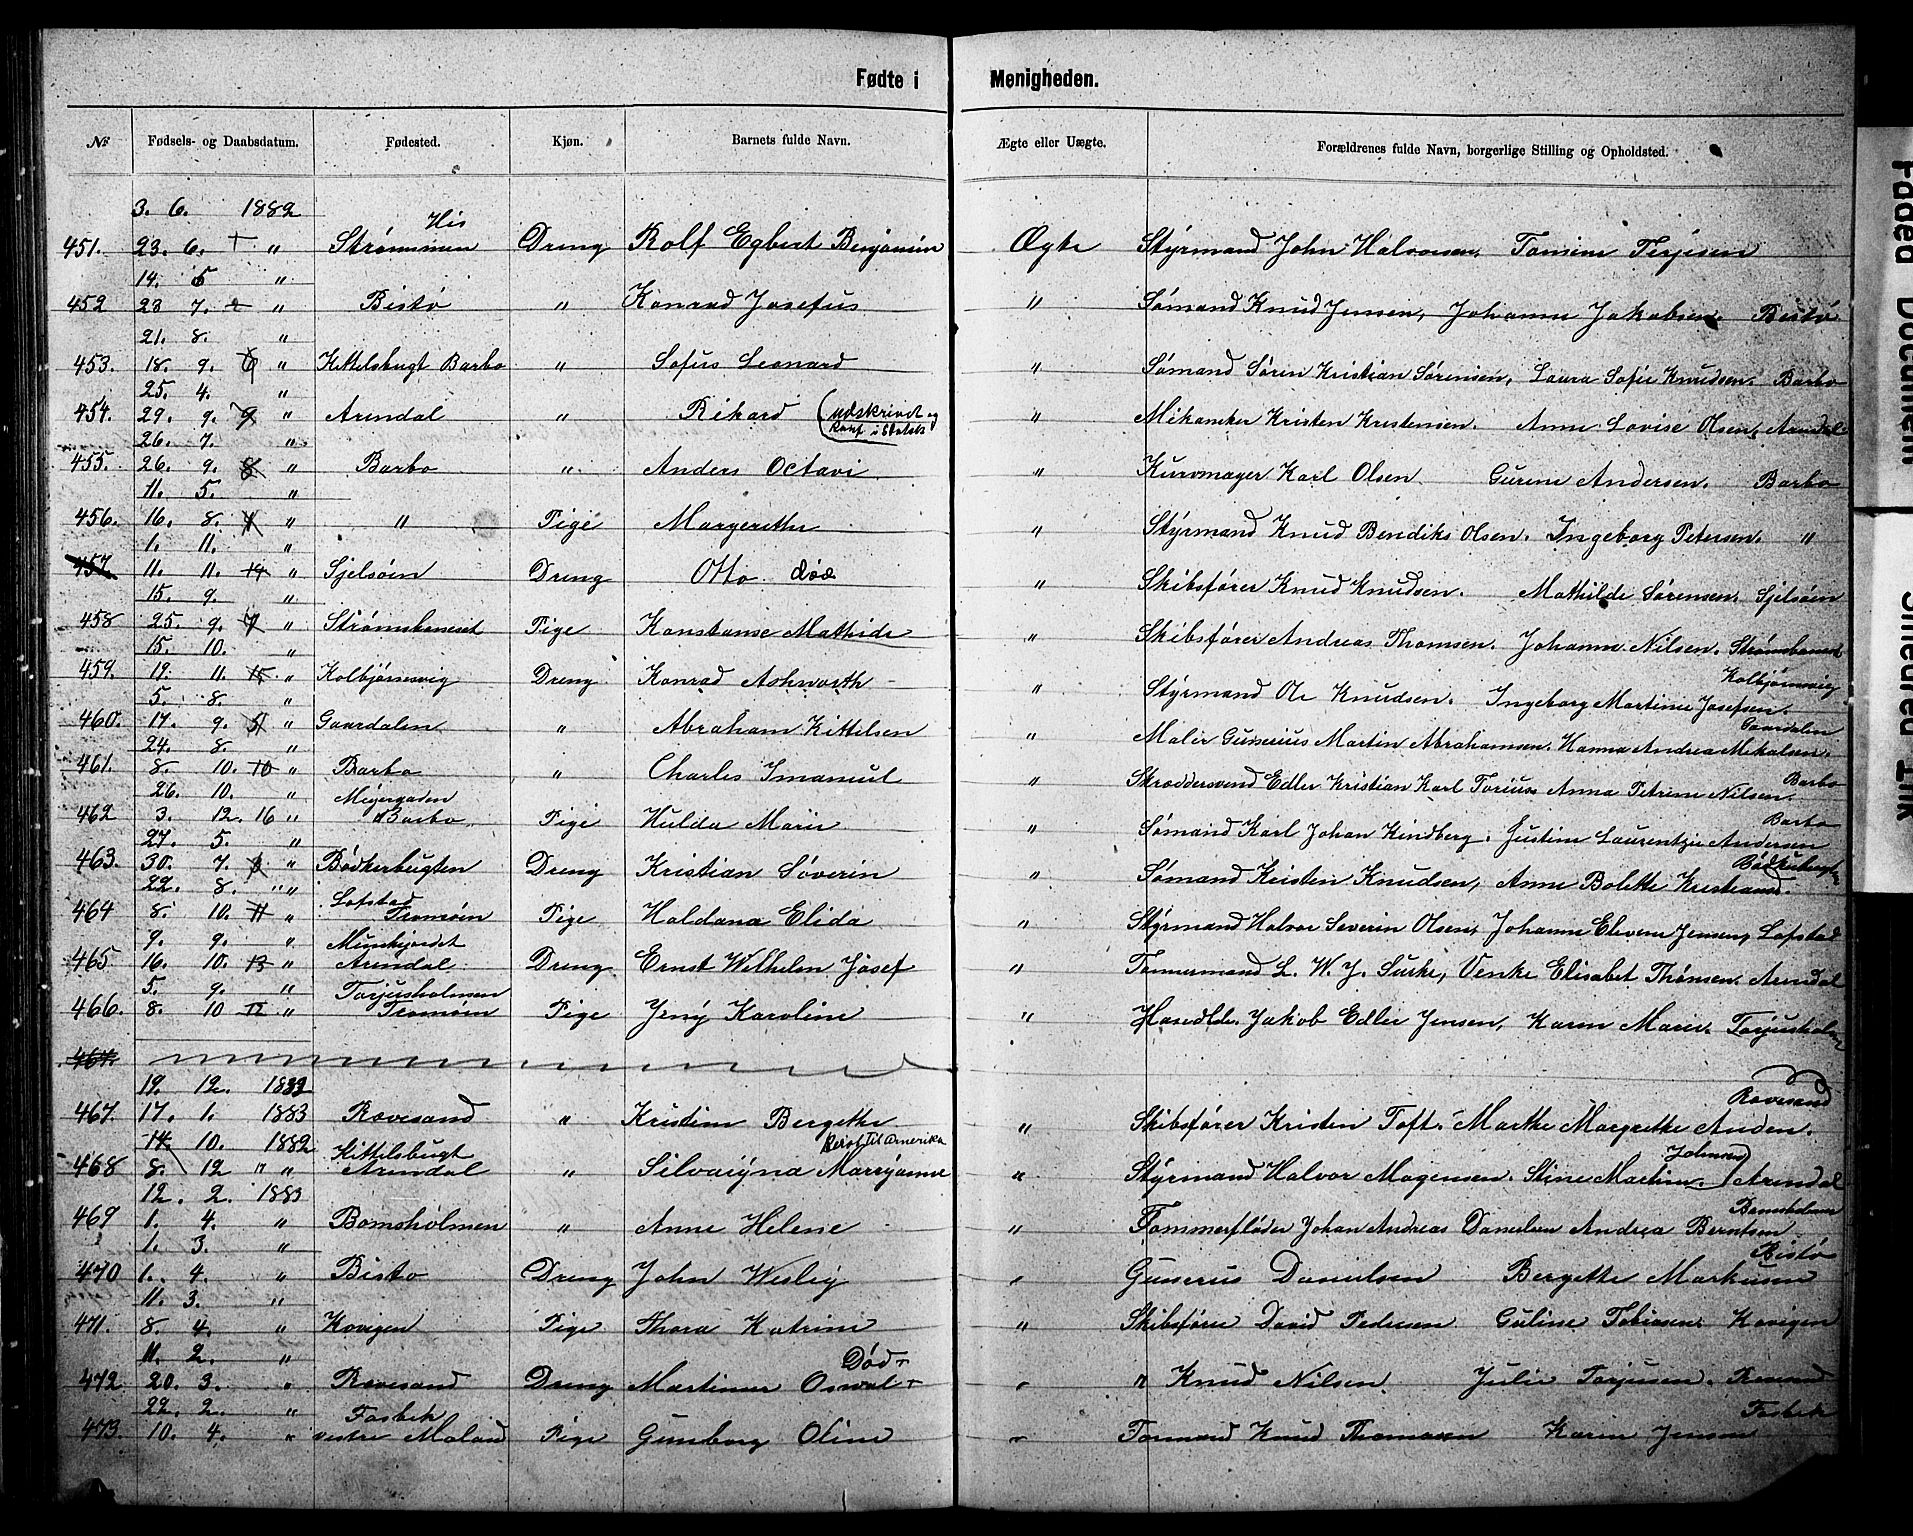 Fødte i Menigheden.
№ Fødsels- og Daabsdatum. Fødested. Kjøn. Barnets fulde Navn. Ægte eller Uægte. Forældrenes fulde Navn, borgerlige Stilling og Opholdsted.
3. 6. 1882 His
451. 23. 6. " Strømmen Dreng Rolf Egbert Benjamin Ægte Styrmand John Halvorsen. Tomine Terjesen
14. 5 "
452 23 7. 2 " Bistø " Konrad Josefus " Sømand Knud Jensen, Johanne Jakobsen. Bistø
21. 8. "
453. 18. 9. 6 " Kittelsbugt Barbo " Sofus Leonard " Sømand Søren Kristian Sørensen, Laura Sofie Knudsen. Barbo
25. 4. "
454. 29. 9. 9 " Arendal " Rikard (udskrivet og " Mikaniker Kristen Kristensen. Anne Lovise Olsen, Arendal
26. 7. "
455. 26. 9. 8 " Barbo " Anders Octavi " Kurvmager Karl Olsen. Gurine Andersen. Barbo
11. 5. "
456. 16. 8. 4 " " Pige Margerethe " Styrmand Knud Bendiks Olsen. Ingeborg Petersen. "
1. 11. "
457. 11. 11. 14 " Sjelsøin Dreng Otto død " Skibsfører Knud Knudsen. Mathilde Sørensen. Sjelsøin
15. 9. "
458 25. 9. 7 " Strømsbuneset Pige Konstanse Mathide " Skibsfører Andreas Thomsen. Johanne Nilsen.
15. 10. "
459. 19. 11. 15 " Kolbjørnsvig Dreng Konrad Ashworth " Styrmand Ole Knudsen. Ingeborg Martine Josefsen. Kolbjørnsvig
5. 8. "
460. 17. 9. 5 " Gaardalen " Abraham Kittelsen " Maler Gunerius Martin Abrahamsen. Hanna Andrea Mikalsen. Gaardalen
24. 8. "
461. 8. 10. 10 " Barbo " Charles Imanuel " Skræddersvend Edler Kristian Karl Toriuss Anna Petrine Nilsen. Barbo
26. 10. " Meyergaden
462 3. 12. 16 " Barbo Pige Hulda Marie " Sømand Karl Johan Kindberg. Justine Laurentzie Andersen Barbo
27. 5. "
463. 30. 7. 3 " Bødkerbugten Dreng Kristian Søverin " Sømand Kristen Knudsen, Anne Bolette Kristiansd. Bødkerbugten
22. 8. " " Lofstad
464 8. 10. 11 " Tromøin Pige Haldana Elida " Styrmand Halvor Severin Olsen, Johanne Elevene Jensen, Lofstad
9. 9. " Munkjordet
465. 16. 10. 13 " Arendal. Dreng Ernst Wilhelm Josef " Tønnermand L. W. J. Surke, Venke Elisabet Thønsen. Arendal
5. 9. " Torjusholmen
466. 8. 10 12 " Tromøin Pige Jeny Karoline " Jakob Edler Jensen, Karen Marie. Torjusholmen
467.
19. 12. 1882
467. 17. 1. 1883 Rævesand " Kristine Bergethe " Skibsfører Kristen Toft. Marthe Margrethe Anden. Rævesand
14. 10. 1882 Kittelsbugt Reist til Amerika
468 8. 12 17 " Arendal " Silvaigna Maryanne " Styrmand Halvor Magensen. Stine Martine. Johnsen Arendal
12. 2. 1883
469 1. 4. " Bomsholmen " Anne Helene " Tømmerfløder Johan Andreas Danielsen Andrea Berntsen Bomsholmen
1. 3. "
470 1. 4. " Bisto Dreng John Wesley " Gunerius Danielsen Bergette Markusen Bistø
11. 3. "
471. 8. 4. " Kovigen Pige Thora Katrine " Skibsfører David Pedersen Guline Tobiasen. Kovigen
11. 2. " Død
472 20. 3. " Rævesand Dreng Martinius Oswal " " Knud Nilsen. Julie Torjusen. Revsand
22. 2. " Fosbek
473. 10. 4. " vestre Moland Pige Gunborg Oline " Tønmand Knud Thomasen Karen Jensen Fosbek
Faded Document
Smeared Ink